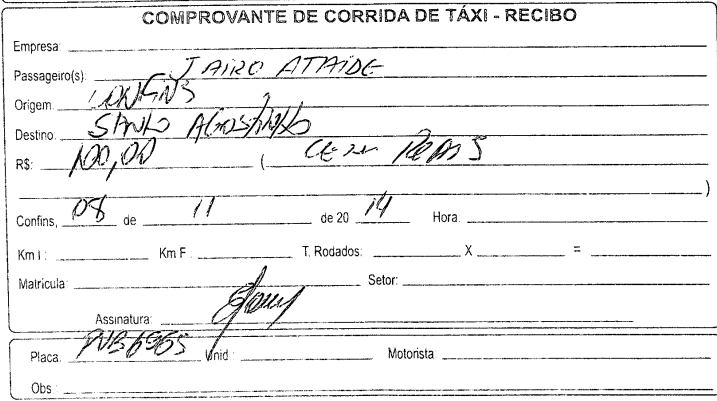 COMPROVANTE DE CORRIDA DE TÁXI - RECIBO
Empresa:
Passageiro(s): JAIRO ATAIDE
Origem: CONFINS
Destino: SANTO AGOSTINHO
R$: 100,00 ( CEM REAIS
)
Confins, 08 de 11 de 20 14 Hora:
Km I : Km F : T. Rodados: X =
Matricula: Setor:
Assinatura:
Placa: Unid : Motorista
Obs :